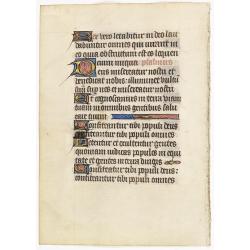 Rex vero letabitur in deo lau
dabuntur omnes qui iurant in
eo quia obstructum est os loquen
cium iniqua. psalmus
Deus misereatur nostri et
benedicat nobis: illuminet vultu
suum super nos et misereatur nostri
Ut cognoscamus in terra viam
tuam in omnibus gentibus salu
tare tuum
Confiteantur tibi populi deus
confiteantur tibi populi omnes
Letentur et exultent gentes
quoniam iudicas populos in equi
tate et gentes in terra dirigis
Confiteantur tibi populi deus:
confiteantur tibi populi omnes